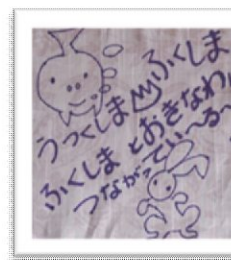 うつくしま ふくしま
ふくしま とおきなわ
つながってい~る~